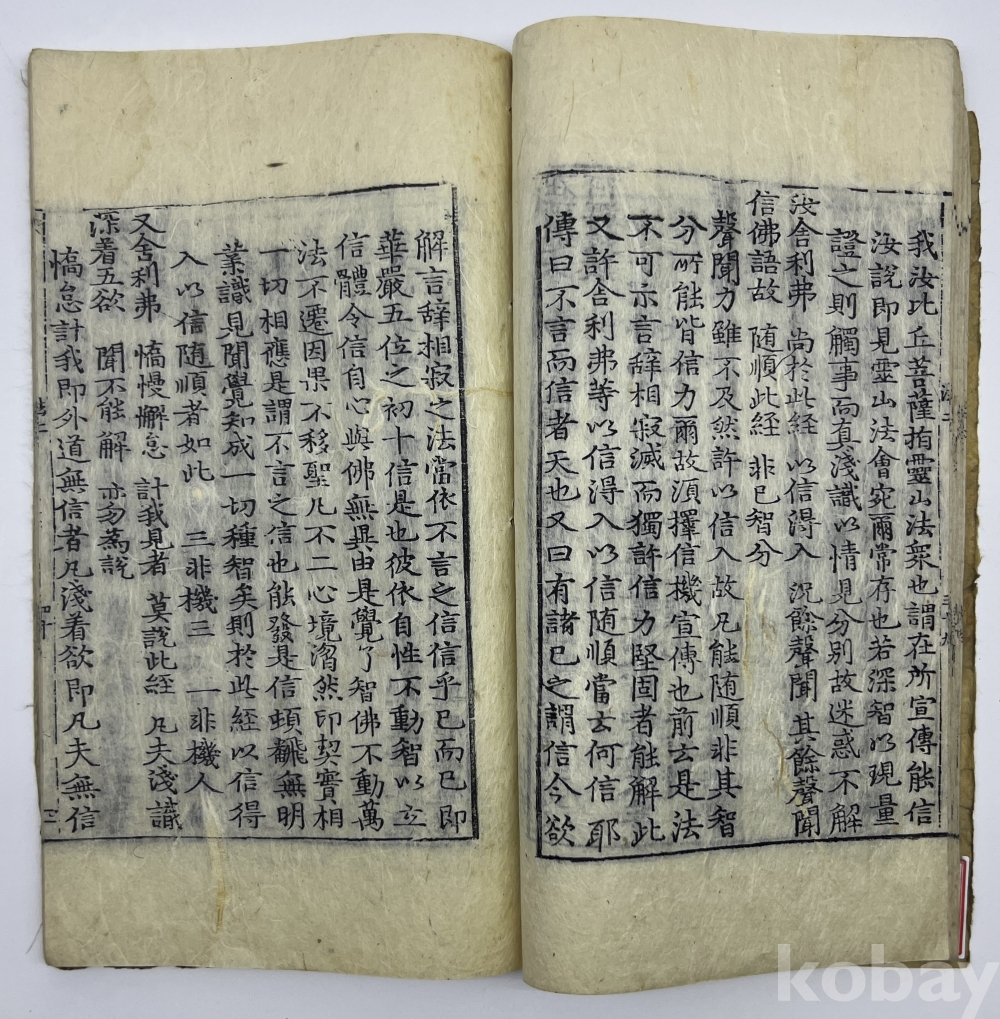 我汝比丘菩薩指靈山法衆也謂在所宣傳能信
汝說即見靈山法會宛爾常存也若深智以現量
證之則觸事而真淺識以情見分別故迷惑不解
汝舍利弗 尚於此經 以信得入 況餘聲聞 其餘聲聞
信佛語故 隨順此經 非已智分
聲聞力雖不及然許以信入故凡能随順非其智
分所能皆信力爾故須擇信機宣傳也前去是法
不可示言辭相寂滅而獨許信力堅固者能解此
又許舍利弗等以信得入以信随順當去何信耶
傳曰不言而信者天也又曰有諸已之謂信今欲
解言辭相寂之法當依不言之信信乎已而已即
華嚴五位之初十信是也彼依自性不動智以立
信體令信自心與佛無異由是覺了智佛不動萬
法不遷因果不移聖凡不二心境湛然印契實相
一切相應是謂不言之信也能發是信頓飜無明
業識見聞覺知成一切種智矣則於此經以信得
入以信随順者如此 三非機三 一非機人
又舍利弗 憍慢懈怠 計我見者 莫說此經 凡夫淺識
深着五欲 聞不能解 亦勿爲說
憍怠計我即外道無信者凡淺着欲即凡夫無信
kobay